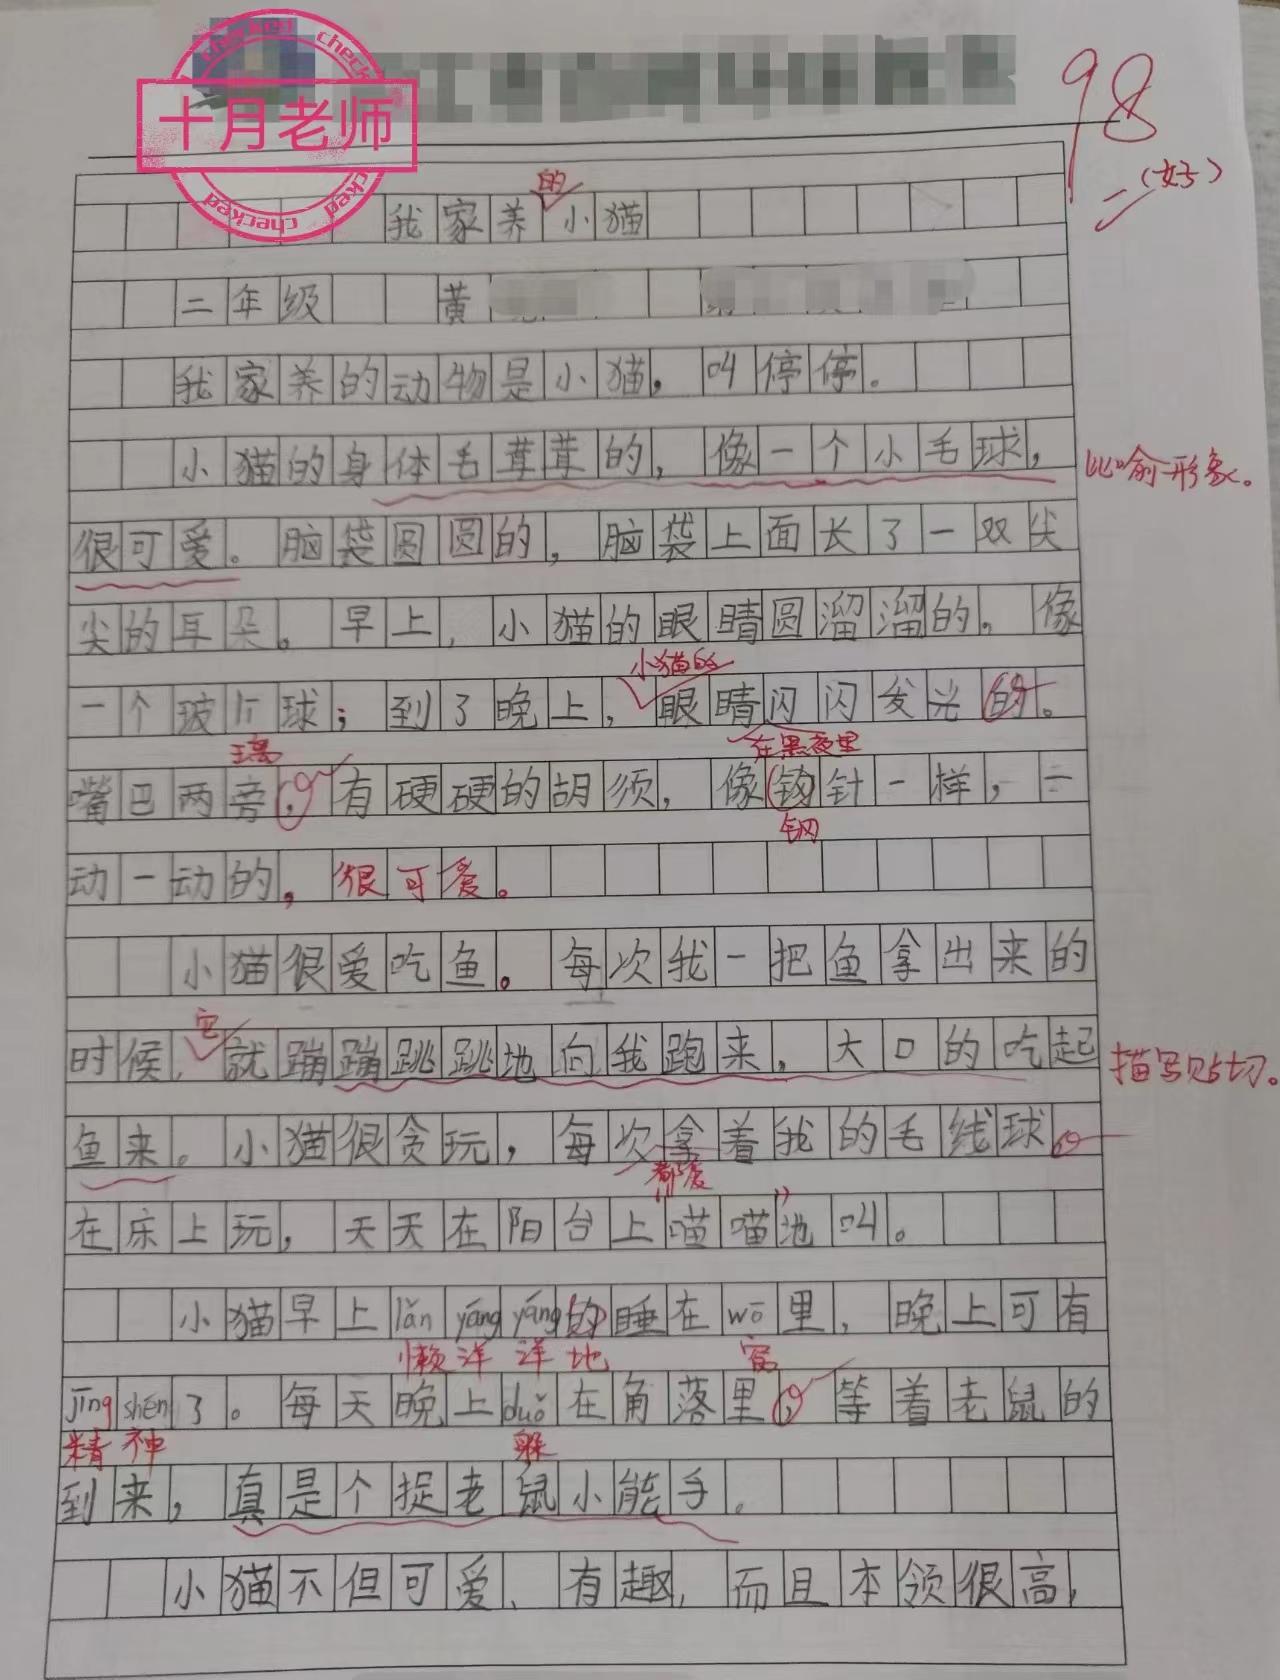 checked checked
十月老师
checked checked
98
(好)
的
我家养小猫
二年级 黄
我家养的动物是小猫，叫停停。
小猫的身体毛茸茸的，像一个小毛球，
比喻形象。
很可爱。脑袋圆圆的，脑袋上面长了一双尖
尖的耳朵。早上，小猫的眼睛圆溜溜的。像
小猫的
一个玻片球；到了晚上，眼睛闪闪发光的。
璃 在黑夜里
嘴巴两旁，有硬硬的胡须，像钩针一样，一
钢
动一动的，很可爱。
小猫很爱吃鱼。每次我一把鱼拿出来的
它
时候，就蹦蹦跳跳地向我跑来，大口的吃起
描写贴切。
鱼来。小猫很贪玩，每次拿着我的毛线球，
都爱
在床上玩，天天在阳台上“喵喵”地叫。
小猫早上lǎn yáng yáng的睡在wō里，晚上可有
懒洋洋地 窝
jīng shén了。每天晚上duǒ在角落里，等着老鼠的
精神 躲
到来，真是个捉老鼠小能手。
小猫不但可爱、有趣，而且本领很高，